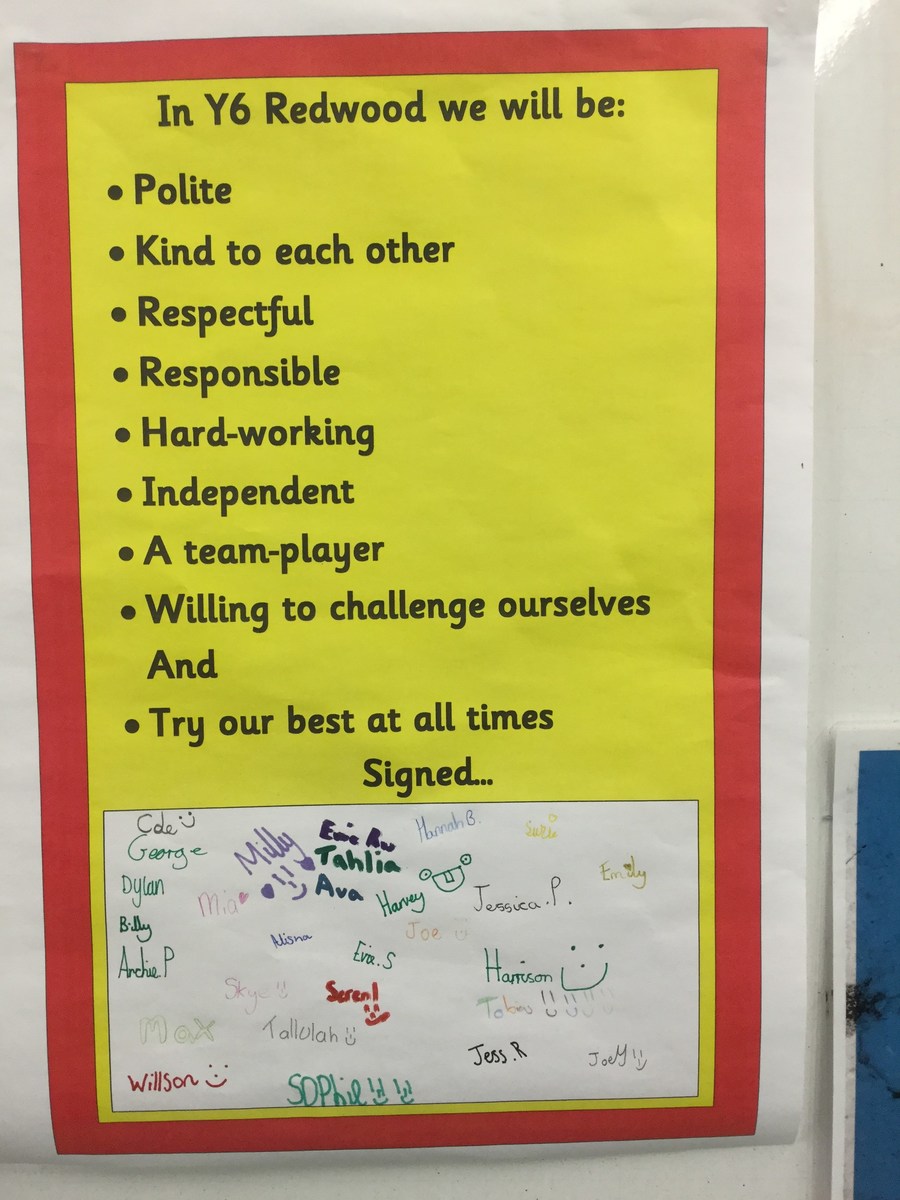 In Y6 Redwood we will be:
• Polite
• Kind to each other
• Respectful
• Responsible
• Hard-working
• Independent
• A team-player
• Willing to challenge ourselves
And
• Try our best at all times
Signed...
Cole
George
Dylan
Billy
Archie.P
Milly
Mia
Tahlia
Ava
Hannah B.
Harvey
Jessica.P.
Emily
Joe
Evie.S
Harrison
Skye
Seren
Max
Tallulah
Jess.R
JoeY
Willson
SOPhie